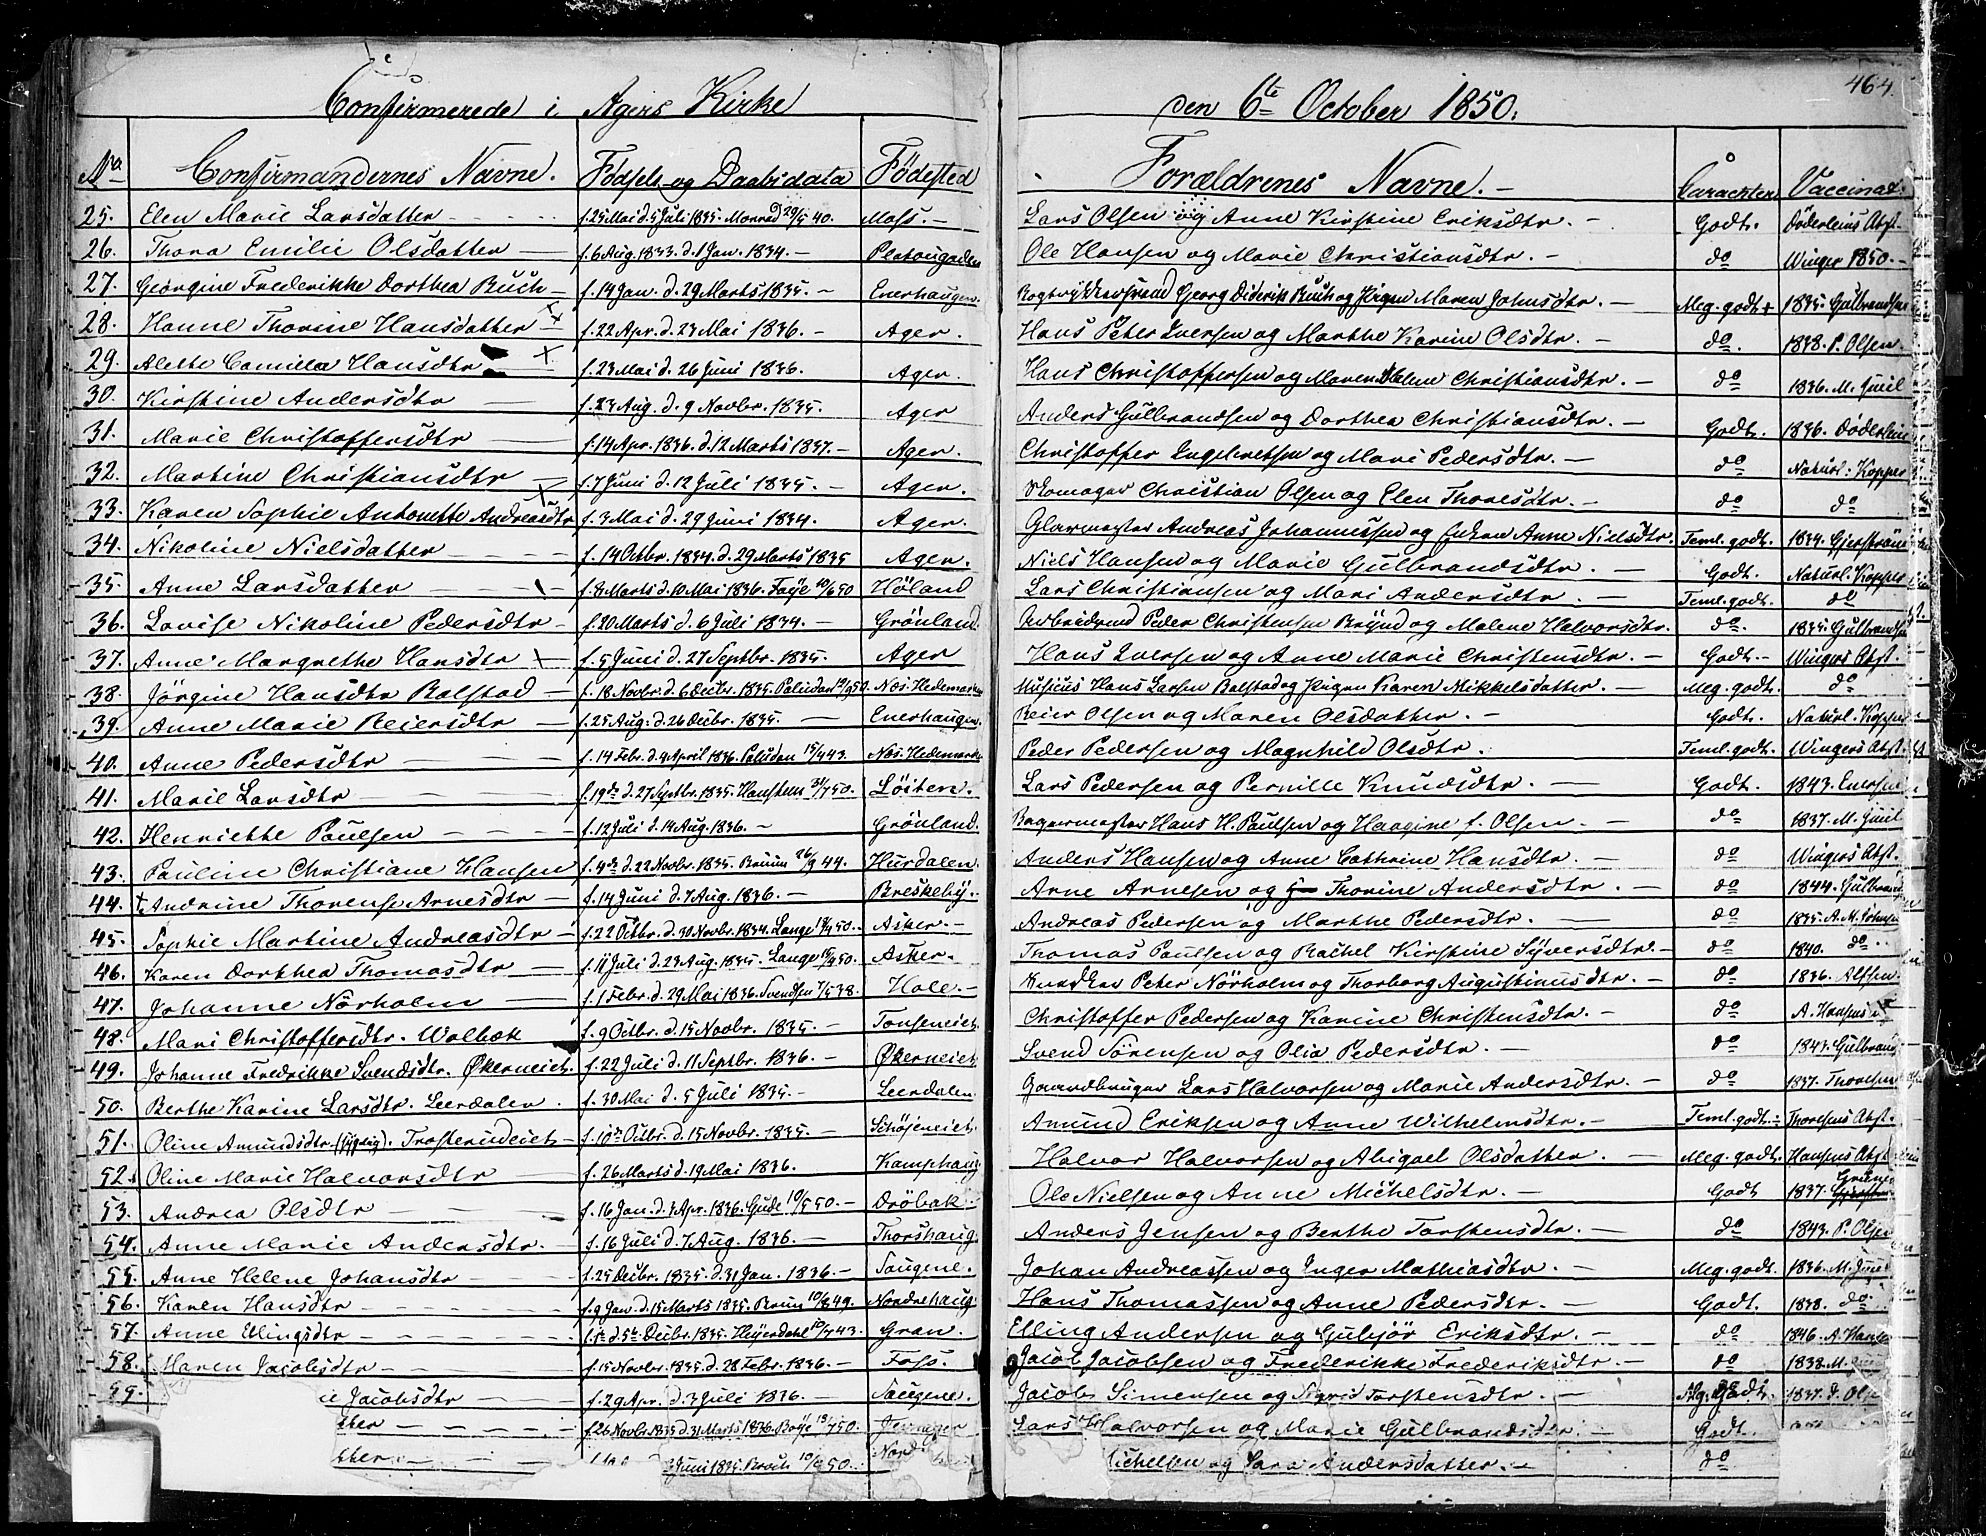 464.
Confirmerede i Agers Kirke den 6te October 1850.
No Confirmandernes Navne. Fødsels og Daabsdata Fødested Forældrenes Navne. Carachter Vaccinat.
25. Elen Marie Larsdatter f. 25 Mai d. 5 Juli 1835. Monrad 29/5 40. Moss. Lars Olsen og Anne Kirstine Eriksdtr. Godt. Døderleins Atst.
26. Thora Emilie Olsdatter f. 6 Aug. 1833. d. 1 Jan. 1834. Platougaden Ole Hansen og Marie Christiansdtr. do Winger 1850.
27. Georgine Frederikke Dorthea Ruch f. 14 Jan. d. 29 Marts 1835. Enerhaugen. Bogtrykkersvend Georg Diderik Ruch og Pigen Maren Johnsdtr. Meg. godt + 1835. Gulbrandsen
28. Hanne Thorine Hansdatter f. 22 Apr. d. 23 Mai 1836. Ager. Hans Peter Iversen og Marthe Karine Olsdtr. do. 1838. P. Olsen.
29. Alette Camilla Hansdtr f. 23 Mai d. 26 Juni 1836. Ager. Hans Christoffersen og Maren Malene Christiansdtr. do 1836. M. Juell
30. Kirstine Andersdtr f. 23 Aug. d. 9 Novbr. 1835. Ager Anders Gulbrandsen og Dorthea Christiansdtr. Godt. 1836. Døderlein
31. Marie Christoffersdtr f. 14 Apr. 1836. d. 12 Marts 1837. Ager. Christoffer Engebretsen og Mari Pedersdtr. do Naturl: Kopper
32. Martine Christiansdtr f. 7 Juni d. 12 Juli 1835. Ager. Skomager Christian Olsen og Elen Thoresdtr. do do
33. Karen Sophie Antonette Andreasdtr f. 3 Mai d. 29 Juni 1834. Ager. Glarmester Andreas Johannessen og Enken Anne Nielsdtr. Teml. godt. 1834. Gjerstrøm
34. Nikoline Nielsdatter f. 14 Octbr. 1834. d. 29 Marts 1835 Ager. Niels Hansen og Marie Gulbrandsdtr. Godt. Naturl. Kopper
35. Anne Larsdatter f. 8 Marts d. 10 Mai 1836. Faye 10/6 50 Höland Lars Christiansen og Mari Andersdtr. Teml. godt. do
36. Lovise Nikoline Pedersdtr f. 20 Marts d. 6 Juli 1834. Grönland. Arbeidsmd Peder Christensen Brynd og Malene Halvorsdtr. do. 1835. Gulbrandsen
37. Anne Margrethe Hansdtr f. 5 Juni d. 27 Septbr. 1835. Ager Hans Iversen og Anne Marie Christensdtr. Godt. Wingers Atst.
38. Jörgine Hansdtr Balstad f. 18 Novbr. d. 6 Decbr. 1835. Paludan 12/9 50. Næs. Hedemarken Musicus Hans Larsen Balstad og Pigen Karen Mikkelsdatter. Meg. godt. do
39. Anne Marie Reiersdtr f. 25 Aug. d. 26 Decbr. 1835. Enerhaugen. Reier Olsen og Maren Olsdatter. Godt. Naturl. Kopper
40. Anne Pedersdtr f. 14 Febr. d. 4 April 1836. Paludan 15/4 43. Næs. Hedemarken Peder Pedersen og Magnhild Olsdtr. Teml. godt. Wingers Atst.
41. Marie Larsdtr f. 19de d. 27 Septbr. 1835. Hansteen 31/7 50. Löiten. Lars Pedersen og Pernille Knudsdtr. Godt. 1843. Enersen
42. Henriette Paulsen f. 12 Juli d. 14 Aug. 1836. Grönland. Bagermester Hans H. Paulsen og Haagine f. Olsen. do 1837. M. Juell
43. Pauline Christiane Hansen f. 4de d. 22 Novbr. 1835. Bruun 26/9 44. Hurdalen. Anders Hansen og Anne Cathrine Hansdtr. do Wingers Atst.
44. Andrine Thorense Arnesdtr f. 14 Juni d. 7 Aug. 1836. Breskeby. Arne Arnesen og Thorine Andersdtr. do 1844. Gulbrands
45. Sophie Martine Andreasdtr f. 22 Octbr. d. 30 Novbr. 1834. Lange 50. Asker. Andreas Pedersen og Marthe Pedersdtr. do 1835. A. M. Johnsen
46. Karen Dorthea Thomasdtr f. 11 Juli d. 23 Aug. 1835. Lange 50. Asker. Thomas Paulsen og Rachel Kirstine Syversdtr. do 1840. do
47. Johanne Nörholm f. 1 Febr. d. 29 Mai 1836. Svendsen 7/5 38. Hole. Peter Nörholm og Thorborg Augustinusdtr. do 1836. Alfsen
48. Mari Christoffersdtr. Wolbæk f. 9 Octbr. d. 15 Novbr. 1835. Tonseneiet. Christoffer Pedersen og Karine Christensdtr. do A. Hansens
49. Johanne Fredrikke Svendsdtr. Økerneiet. f. 22 Juli d. 11 Septbr. 1836. Økerneiet. Svend Sörensen og Olia Pedersdtr. do 1843. Gulbrands
50. Berthe Karine Larsdtr. Leerdalen f. 30 Mai d. 5 Juli 1835. Leerdalen. Gaardbruger Lars Halvorsen og Marie Andersdtr. do 1837. Thoresen
51. Oline Amundsdtr. (sygelig). Trosterudeiet f. 10de Octbr. d. 15 Novbr. 1835. Schöjeneiet. Amund Eriksen og Anne Wilhelmsdtr. Teml. godt. Thoresens Atst.
52. Oline Marie Halvorsdtr f. 26 Marts d. 19 Mai 1836. Kamphaug Halvor Halvorsen og Abigael Olsdatter. Meg. godt. Hansens Atst
53. Andrea Olsdtr f. 16 Jan. d. 3 Apr. 1836. Gude 10/5 50. Dröbak. Ole Nielsen og Anne Michelsdtr. Godt 1837.
54. Anne Marie Andersdtr. f. 16 Juli d. 7 Aug. 1836. Thorshaug Anders Jensen og Berthe Torstensdtr. do 1843. P. Olsen
55. Anne Helene Johansdtr f. 25 Decbr. 1835. d. 31 Jan. 1836. Saugene. Johan Andreassen og Inger Mathiasdtr. Meg. godt. 1836. M. Juell
56. Karen Hansdtr f. 9 Jan. d. 15 Marts 1835. Bruun 10/8 49. Nordrehaug Hans Thomassen og Anne Pedersdtr. Godt. 1838. do
57. Anne Ellingsdtr f. 1ste d. 5te Decbr. 1835. Heyerdahl 43. Gran. Elling Andersen og Gubjör Eriksdtr. do 1846. A. Hansen
58. Maren Jacobsdtr f. 15 Novbr. 1835 d. 28 Febr. 1836. Foss. Jacob Jacobsen og Frederikke Frederiksdtr. do 1838. M. Juell
59. e Jacobsdtr f. 29 Apr. d. 3 Juli 1836. Saugene. Jacob Simensen og Sigrid Torstensdtr. Mg. Godt. 1837. P. Olse
tter f. 26 Novbr. 1835 d. 31 Marts 1836. 13/7 50. Lars Halvorsen og Marie Gulbrandsdtr. Godt.
tter Juni 1835. 10/9 50. Nord Michelsen og Sara Andersdatter. do